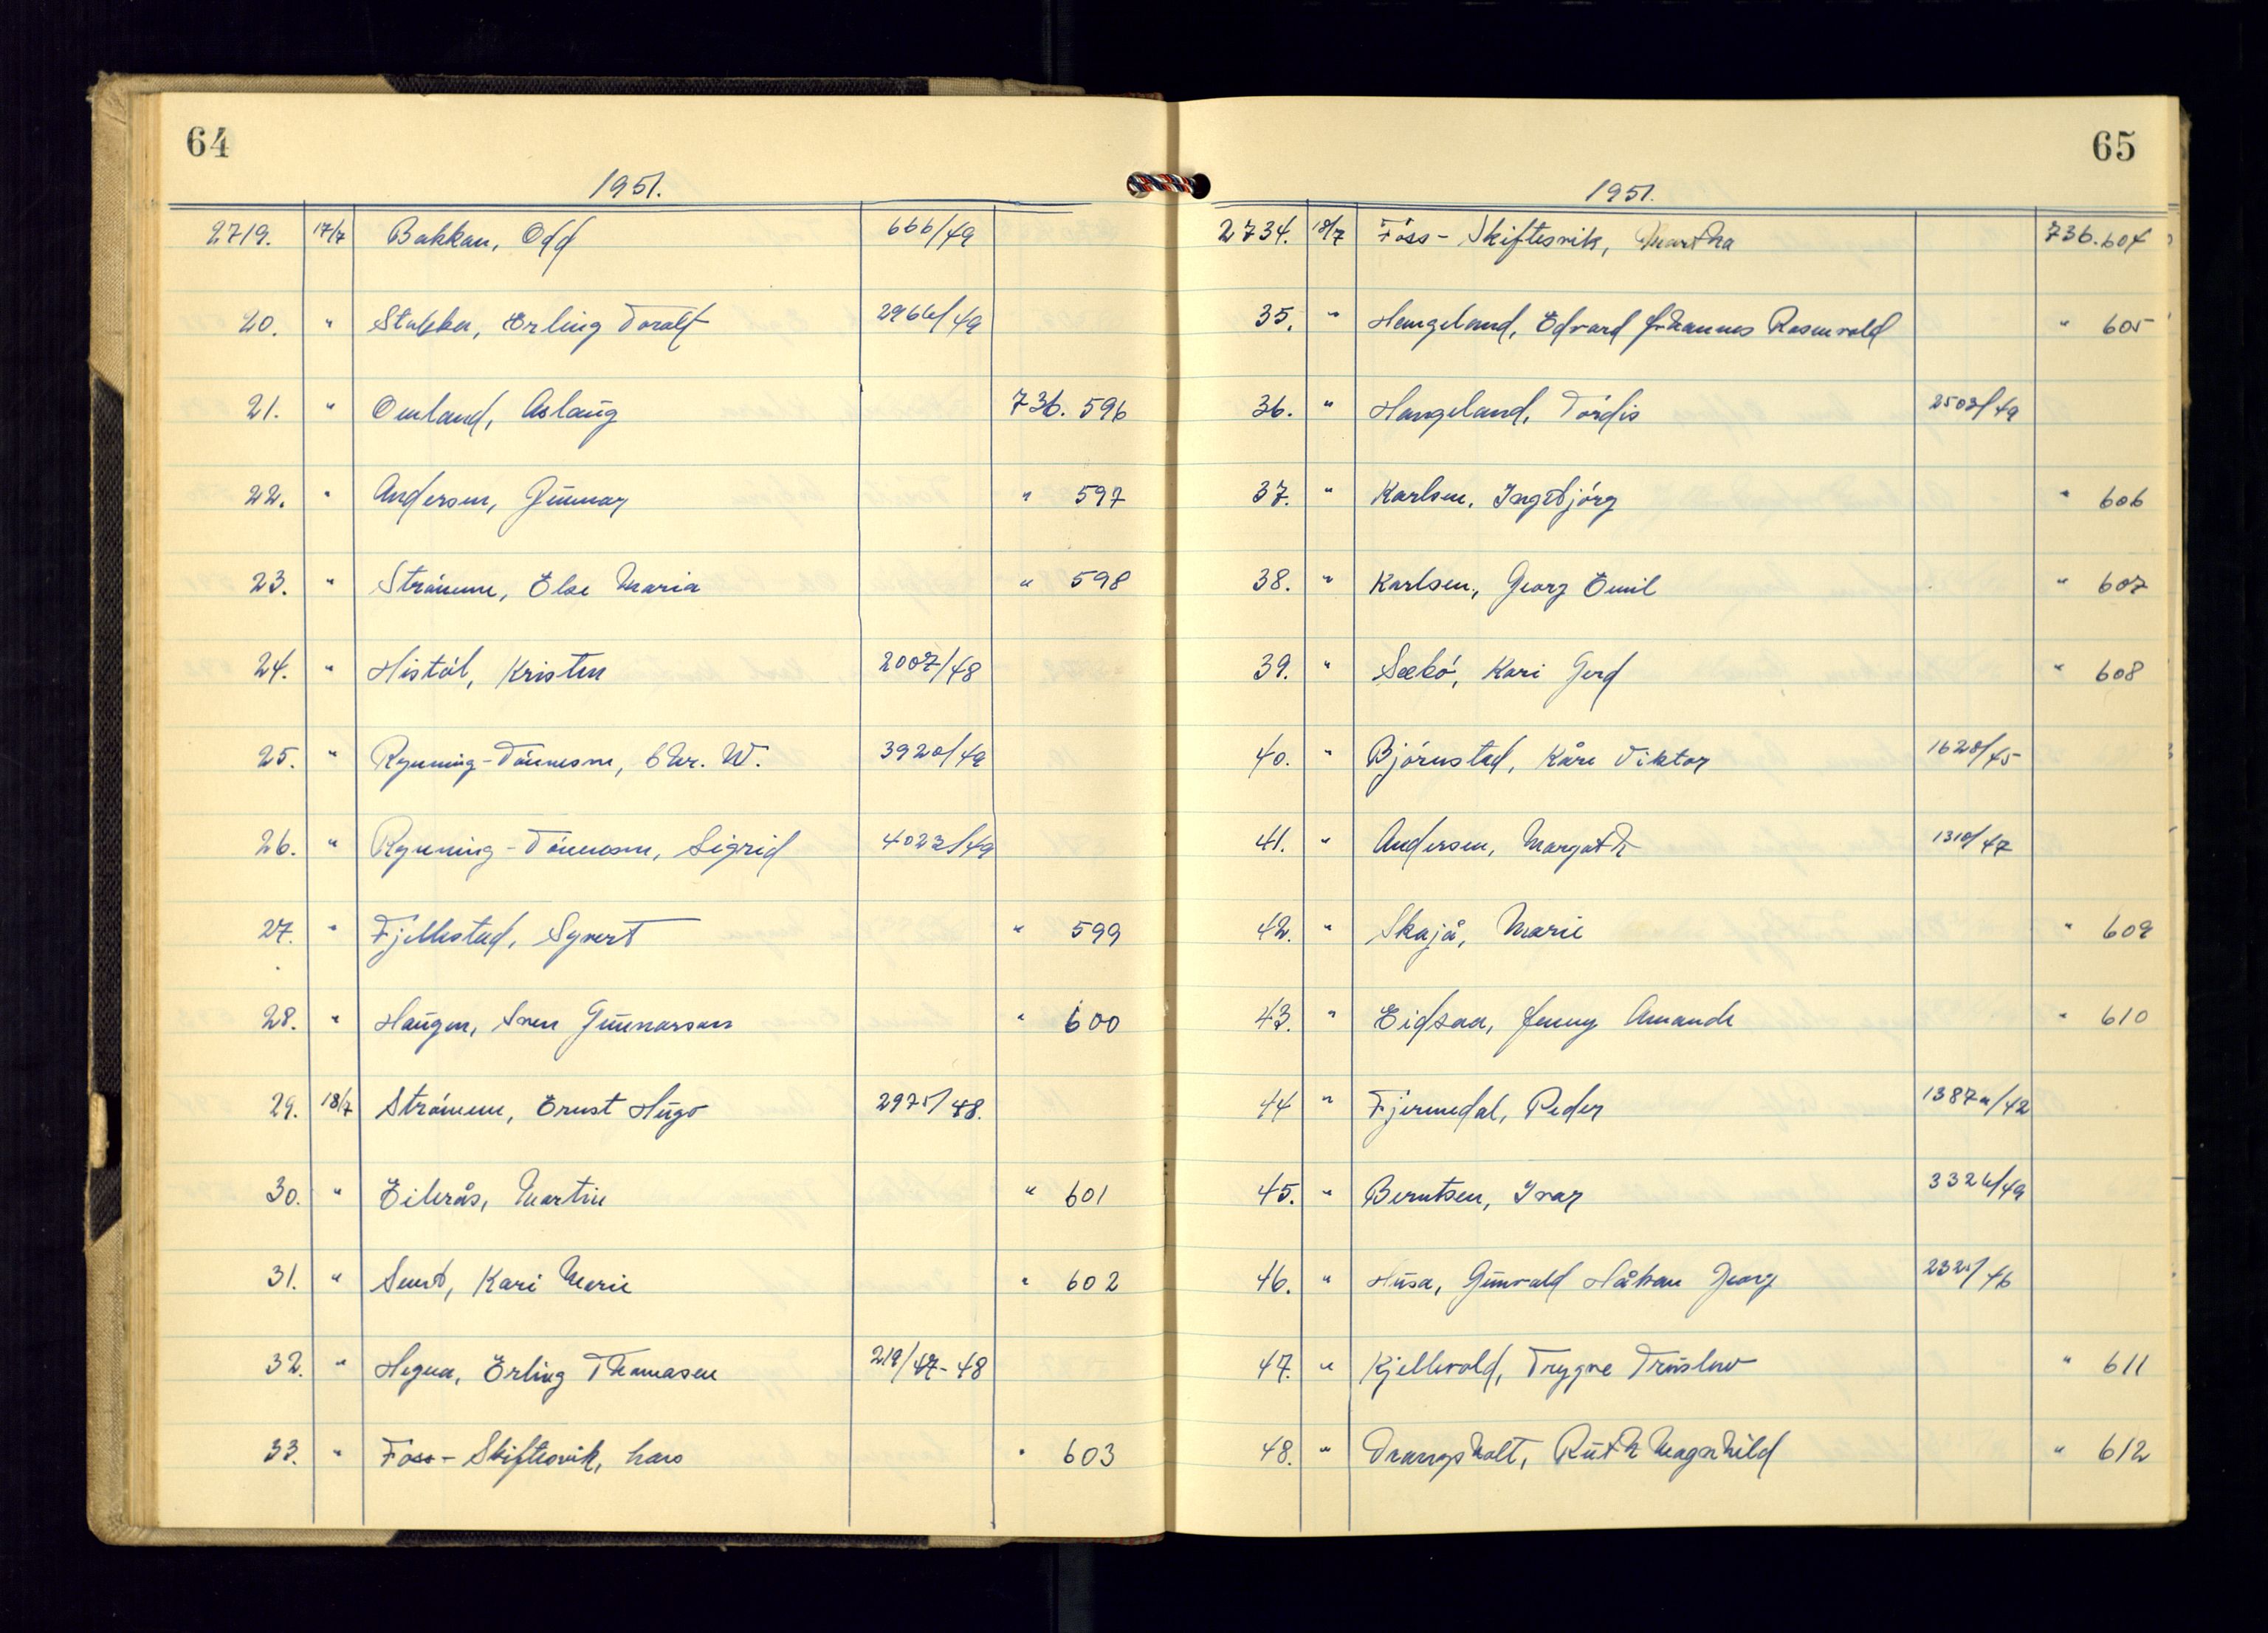 64
1951.
2719. 17/7 Bakkan, Odd 666/49
20. " Stakka, Erling Toralf 2966/49
21. " Omland, Aslaug 736. 596
22. " Andersen, Gunnar " 597
23. " Strömme, Else Maria " 598
24. " Histöl, Kristen 2007/48
25. " Ryning-Tönnesen, Chr. W. 3920/49
26. " Ryning-Tönnesen, Sigrid 4023/49
27. " Fjellestad, Syvert " 599
28. " Haugen, Sven Gunnarson " 600
29. 18/7 Strömme, Ernst Hugo 2975/48.
30. " Eikrås, Martin " 601
31. " Kari Marie " 602
32. " Hegna, Erling Thomasen 219/47-48
33. " Foss-Skiftesvik, hans " 603
65
1951.
2734. 18/7 Foss-Skiftesvik, Martha 736.604
35. " Haugeland, Edvard Johannes Rosenvold " 605
36. " Haugeland, Tordis 2503/49
37. " Karlsen, Ingebjörg " 606
38. " Karlsen, Georg Emil " 607
39. " Seebö, Kari Gerd " 608
40. " Björnstad, Kåre Viktor 1628/45
41. " Andersen, Margoth 1310/47
42. " Skajå, Marie " 609
43. " Eidsaa, Jenny Amanda " 610
44 " Fjermedal, Peder 1387a/42
45. " Berntsen, Ivar 3326/49
46. " Husa, Gunvald Håkon Georg 2325/46
47. " Kjellevold, Trygve Truslew " 611
48. " Drangsholt, Ruth Magnhild " 612